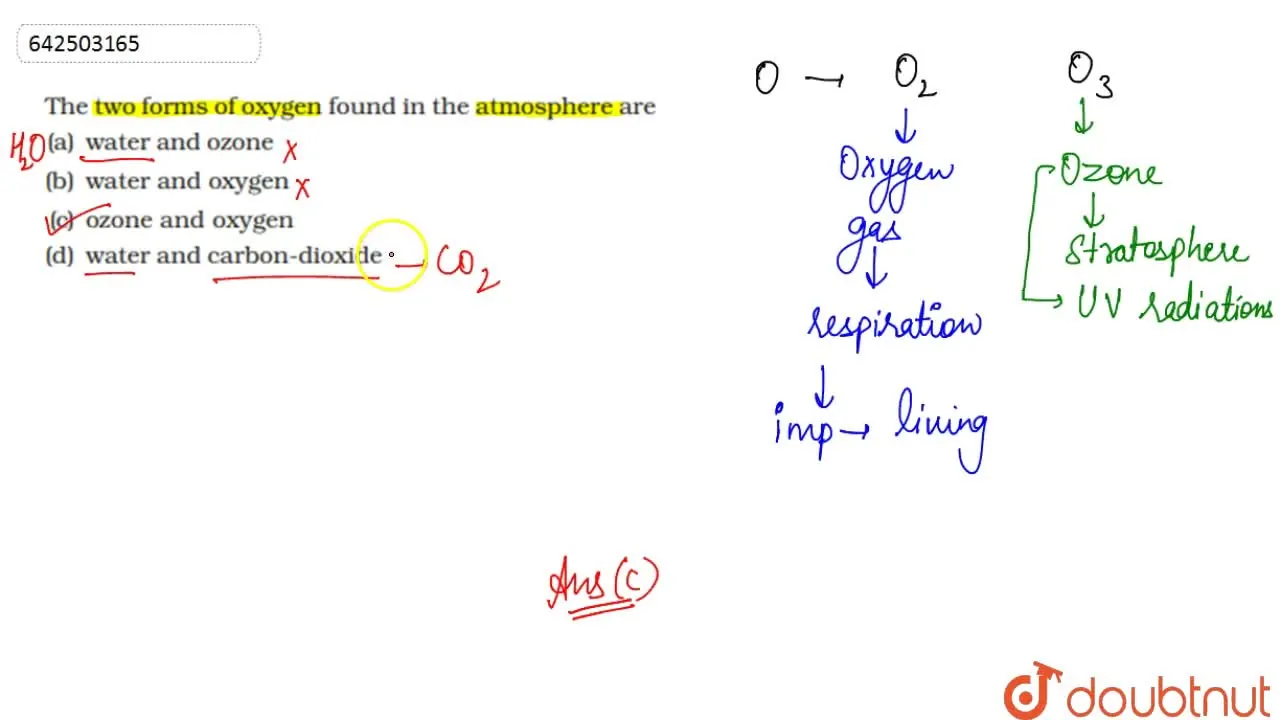 642503165
The two forms of oxygen found in the atmosphere are
H2O (a) water and ozone x
(b) water and oxygen x
(c) ozone and oxygen
(d) water and carbon-dioxide — CO2
O → O2 O3
Oxygen
gas
respiration
imp → living
Ozone
stratosphere
UV radiations
Ans (c)
doubtnut